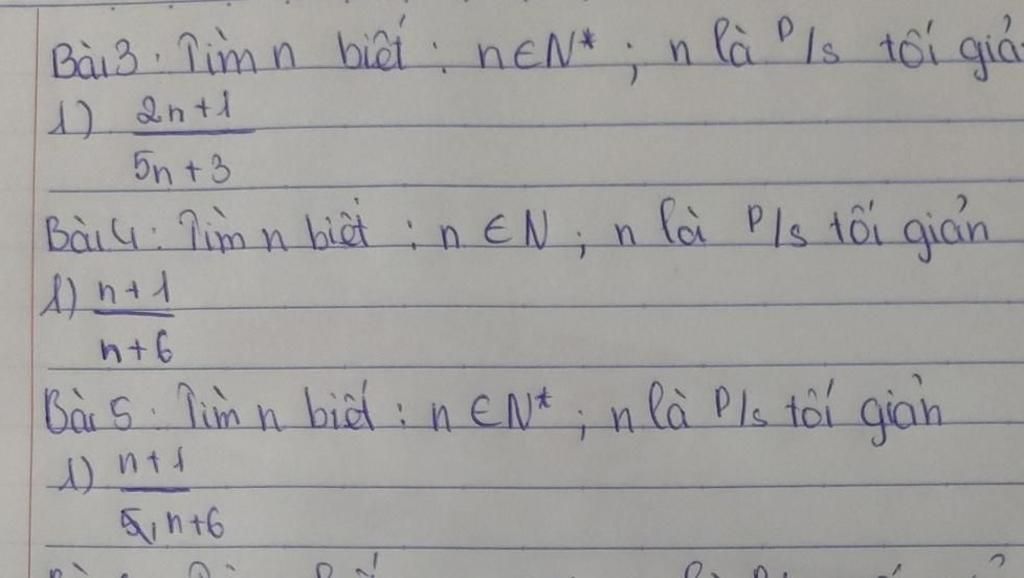 Bài 3: Tìm n biết : n ∈ N* ; n là P/s tối giả
1) 2n + 1
5n + 3
Bài 4: Tìm n biết : n ∈ N ; n là P/s tối giản
1) n + 1
n + 6
Bài 5: Tìm n biết : n ∈ N* ; n là P/s tối giản
1) n + 1
5, n + 6